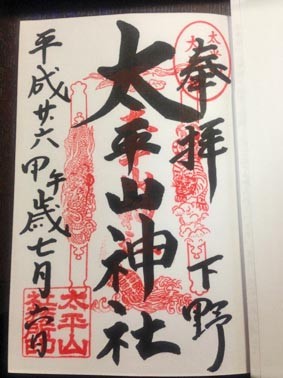 奉拝
下野
太平山神社
平成廿六甲午歳七月六日
太平山